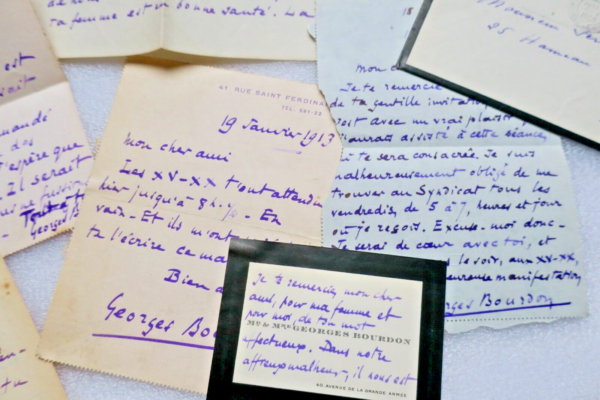 de nou
ta femme est en bonne santé. La
est
rait
mandé
dos
espère que
Il serait
Tout à t
Georges B
41 RUE SAINT FERDINA
TEL.
19 Janvier 1913
Mon cher ami
Les XV-XX t'ont attendu
hier jusqu'à 8h.
En
vain - Et ils m'ont
te l'écrire ce ma
Bien a
Georges Bou
18
mon c
Je te remercie
de ta gentille invitatio
est avec un vrai plaisir
aurais assisté à cette séance,
ui te sera consacrée. Je suis
malheureusement obligé de me
trouver au Syndicat tous les
vendredis, de 5 à 7, heures et jour
où je reçois. Excuse-moi donc -
Je serai de cœur avec toi, et
le soir, aux XV-XX,
manifestation
rges Bourdon
Monsieur
25 Hameau
Je te remercie, mon cher
ami, pour ma femme et
pour moi, de ton mot
MR & MME GEORGES BOURDON
affectueux. Dans notre
affreux malheur, il nous est
40 AVENUE DE LA GRANDE ARMÉE